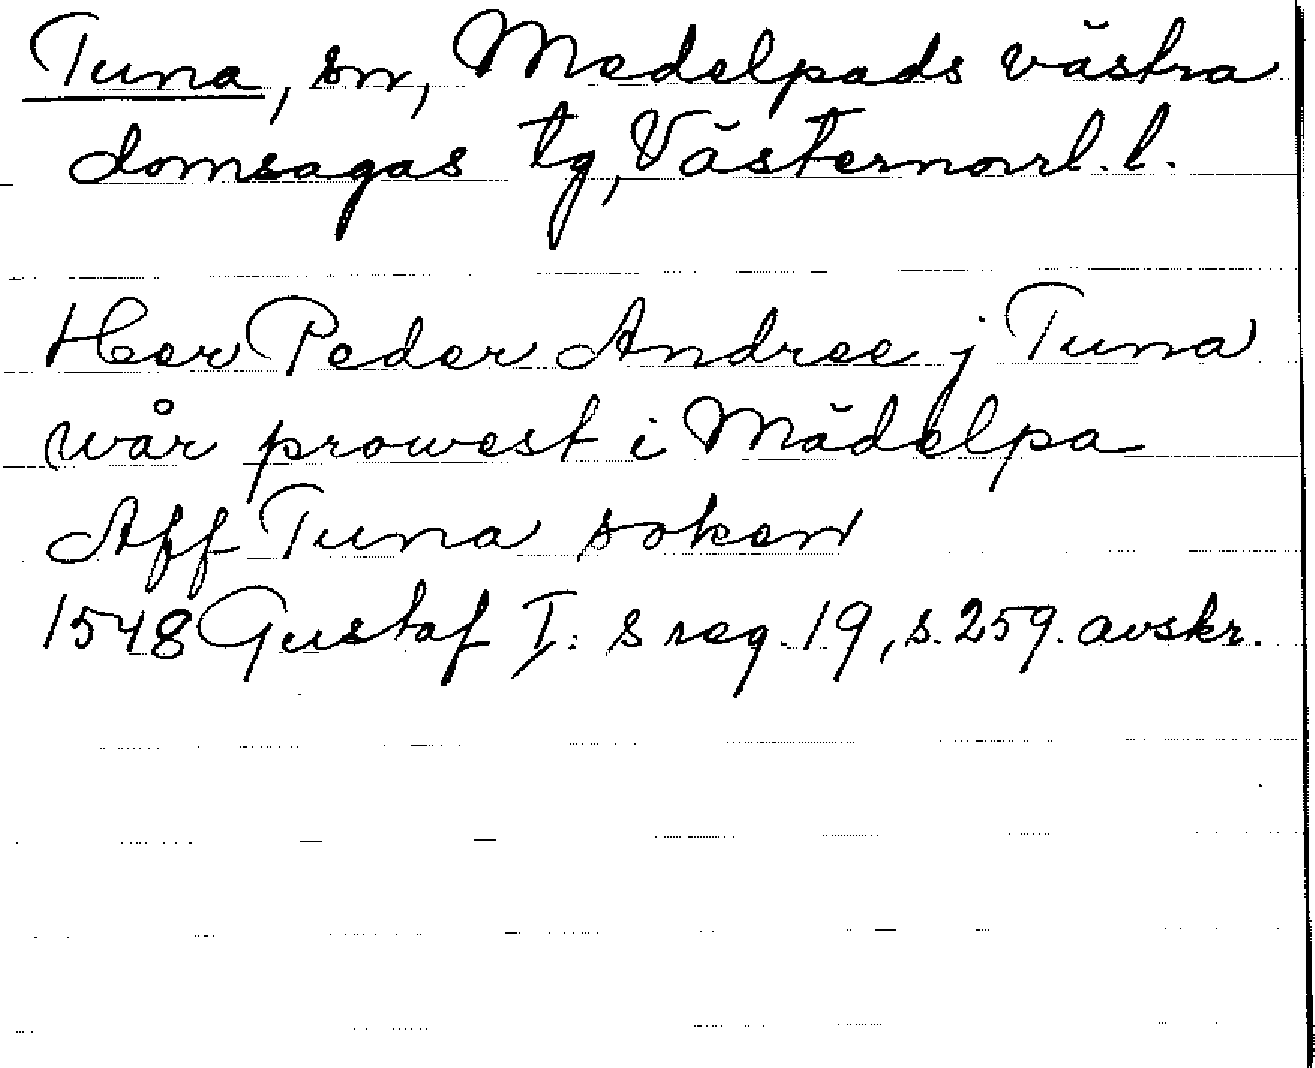 Tuna, sn, Medelpads västra
domsagas tg, Västernorrl. l.
Her Peder Andree j Tuna
wår prowest i Mädelpa
Aff Tuna soken
1548 Gustaf I: s reg. 19, s. 259. avskr.